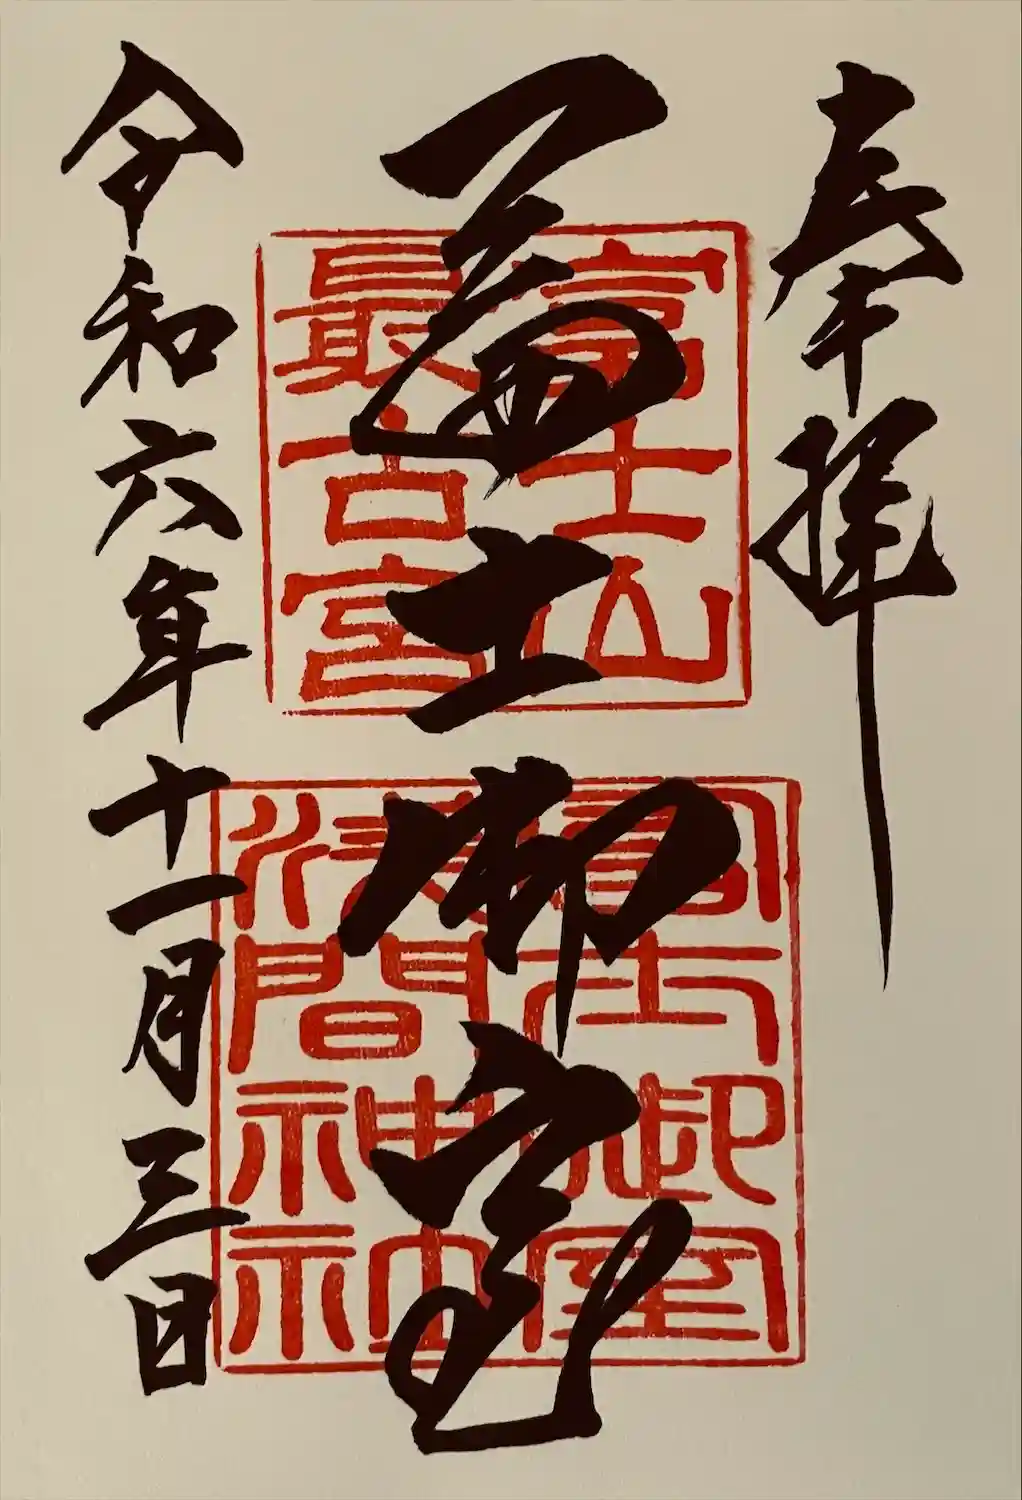 奉拝
富士山
最古宮
富士御室
富士御室
浅間神社
令和六年十一月三日